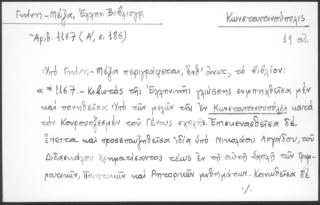 Γκίνη - Μέξα, Ἑλλην. Βιβλιογρ.
Κωνσταντινούπολις
Ἀριθ. 1167 (Α΄, σ. 186)
19 αἰ.
Ὑπὸ Γκίνη - Μέξα περιγράφεται, ἔνθ' ἄνωτ., τὸ βιβλίον:
«*1167.- Κιβωτὸς τῆς Ἑλληνικῆς γλώσσης συμπηχθεῖσα μὲν
καὶ πονηθεῖσα ὑπὸ τῶν μελῶν τῆς ἐν Κωνσταντινουπόλει κατὰ
τὸν Κουρούτζεσμεν τοῦ Γένους σχολῆς. Ἐπισκευασθεῖσα δὲ
ἔπειτα καὶ προσεπαυξηθεῖσα ἰδίᾳ ὑπὸ Νικολάου Λογάδου, τοῦ
Διδασκάλου χρηματίσαντος τέως ἐν τῇ αὐτῇ σχολῇ τῶν Γραμ-
ματικῶν, Ποιητικῶν καὶ Ρητορικῶν μαθημάτων. Κοινωθεῖσα δὲ
·/.